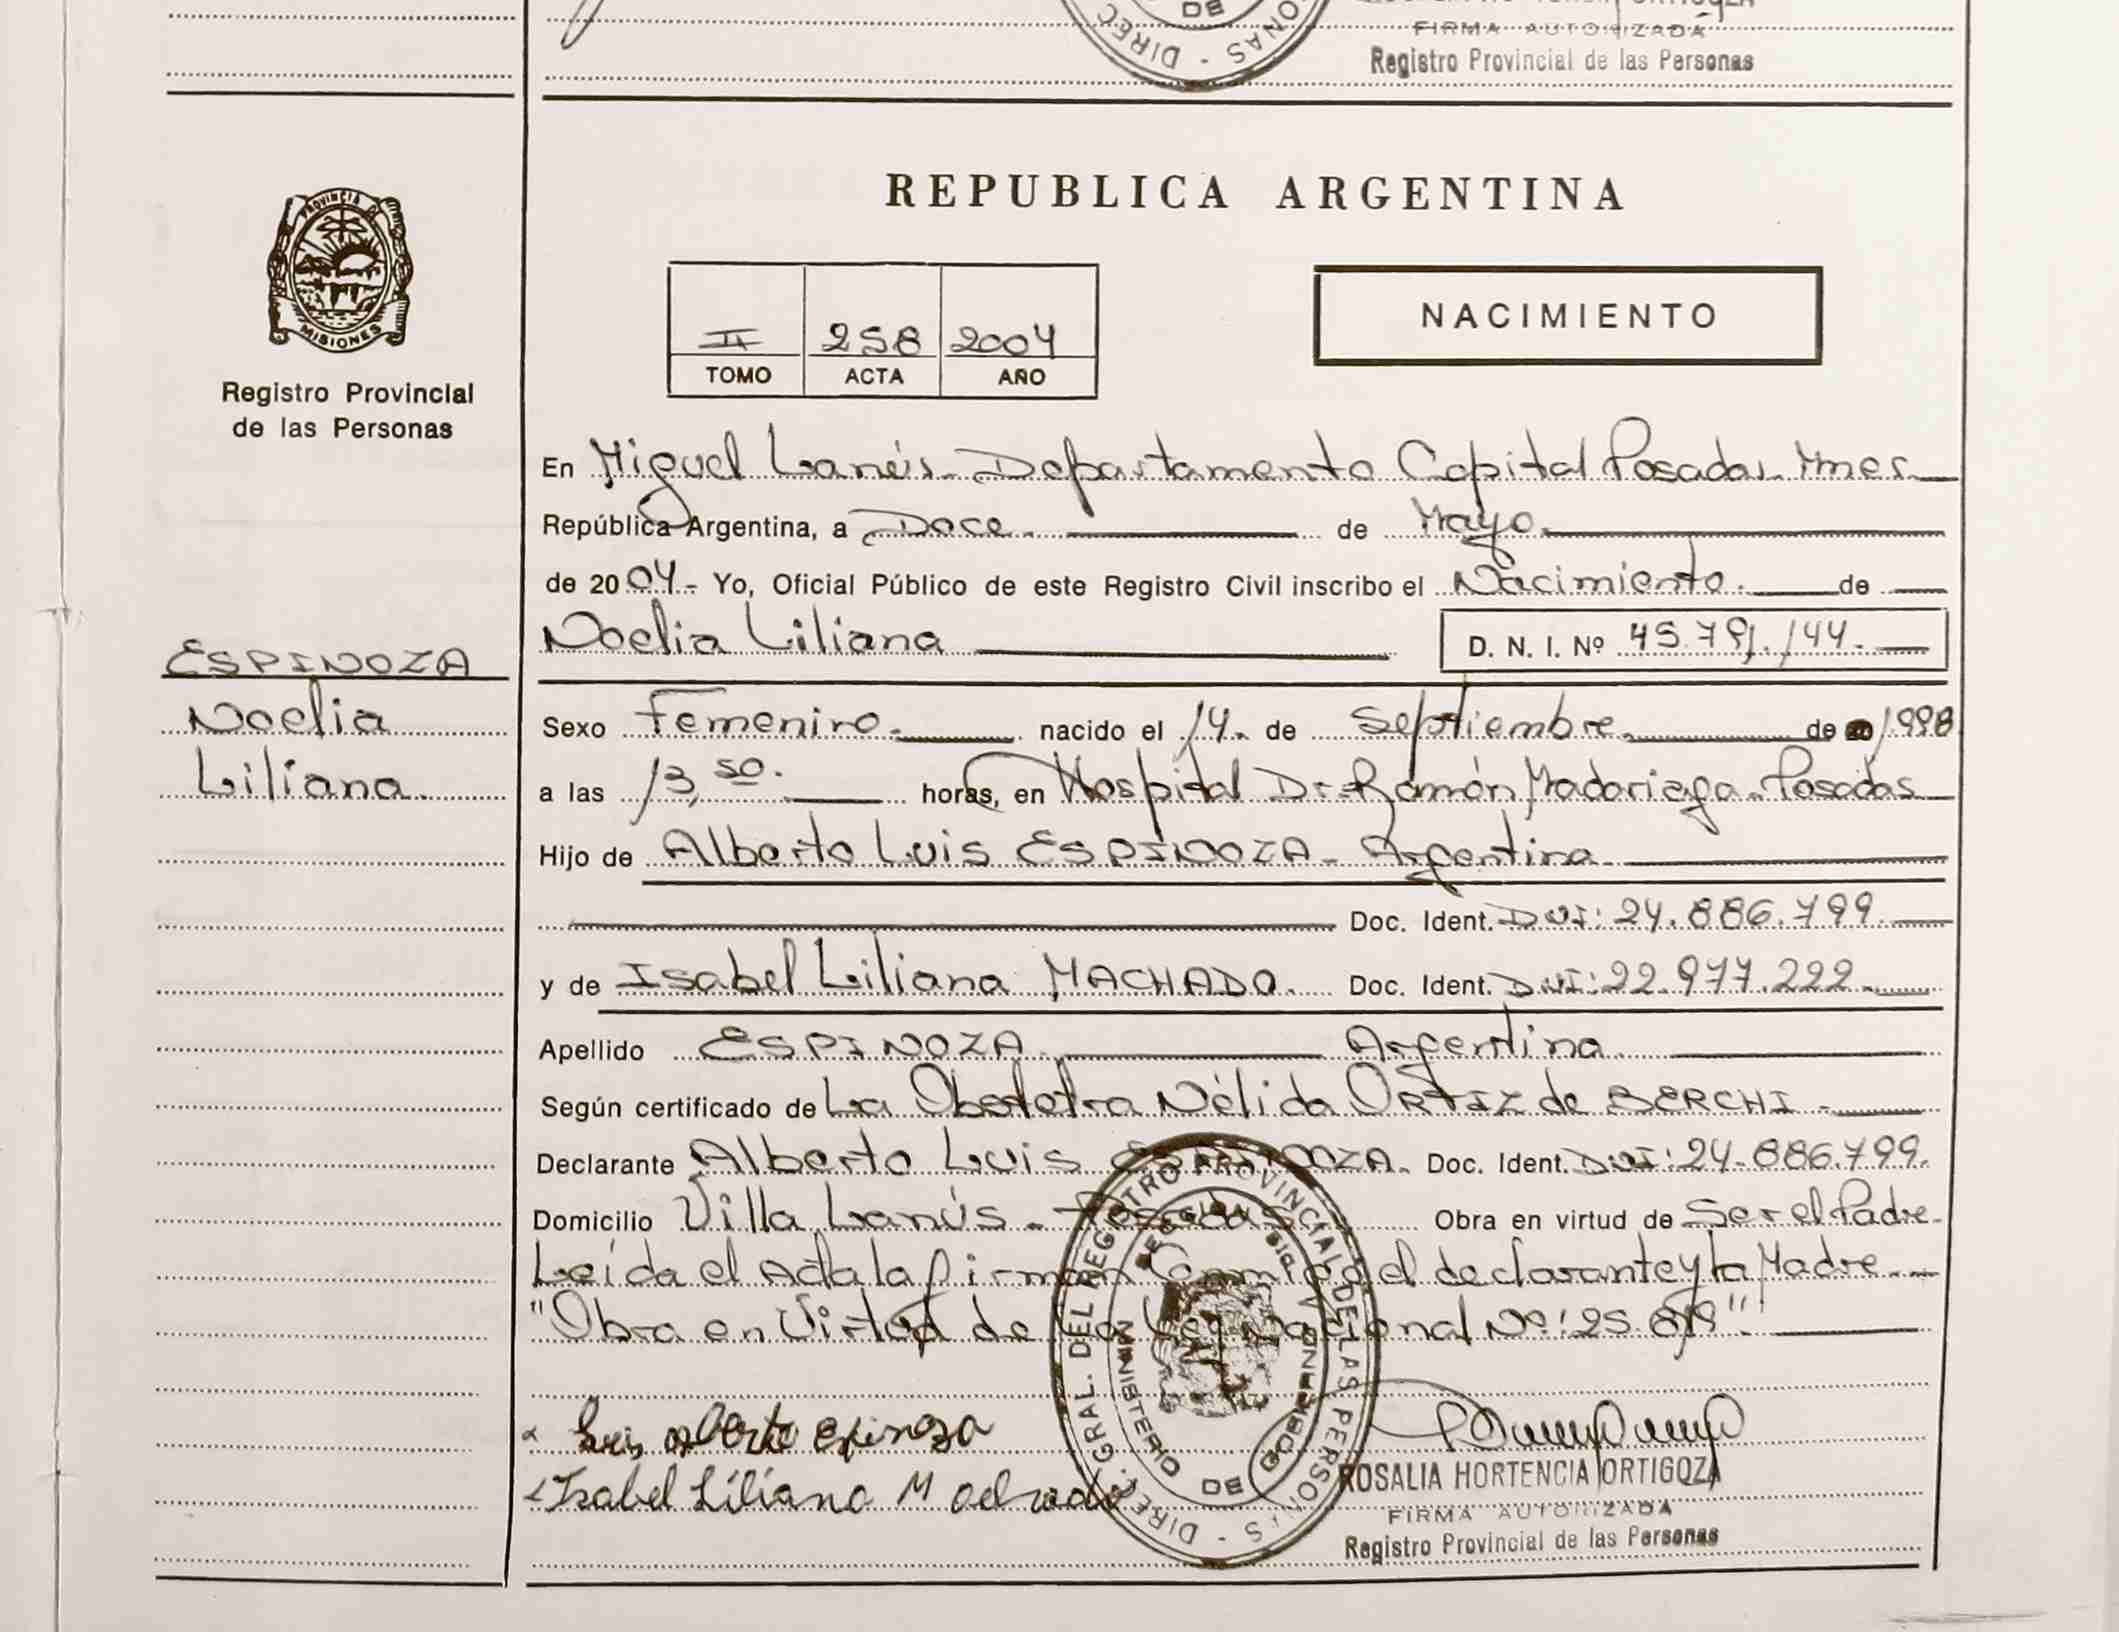 FIRMA AUTORIZADA
Registro Provincial de las Personas
DIREC
ONAS
DE
PROVINCIA DE
MISIONES
Registro Provincial
de las Personas
REPUBLICA ARGENTINA
II 258 2004
TOMO ACTA AÑO
NACIMIENTO
En Miguel Lanús - Departamento Capital Posadas Mnes
República Argentina, a Doce de Mayo
de 2004.- Yo, Oficial Público de este Registro Civil inscribo el Nacimiento. de
Noelia Liliana D. N. I. Nº 45.791.144.
ESPINOZA
Noelia
Liliana.
Sexo Femenino. nacido el 14. de Septiembre. de 1998
a las 13,50. horas, en Hospital Dr. Ramón Madariaga - Posadas
Hijo de Alberto Luis ESPINOZA - Argentina
Doc. Ident. DNI: 24.886.799.
y de Isabel Liliana MACHADO. Doc. Ident. DNI: 22.977.222.
Apellido ESPINOZA Argentina
Según certificado de La Obstetra Nélida ORTIZ de BERCHI -
Declarante Alberto Luis ESPINOZA. Doc. Ident. DNI: 24.886.799.
Domicilio Villa Lanús - Posadas Obra en virtud de Ser el Padre.
Leída el Acta la firman Conmigo el declarante y la Madre.-
"Obra en Virtud de la Ley Nacional Nº: 25.819".
Luis Alberto Espinoza
Isabel Liliana Machado
DIREC. GRAL. DEL REGISTRO PROVINCIAL DE LAS PERSONAS
MINISTERIO DE GOBIERNO
ROSALIA HORTENCIA ORTIGOZA
FIRMA AUTORIZADA
Registro Provincial de las Personas